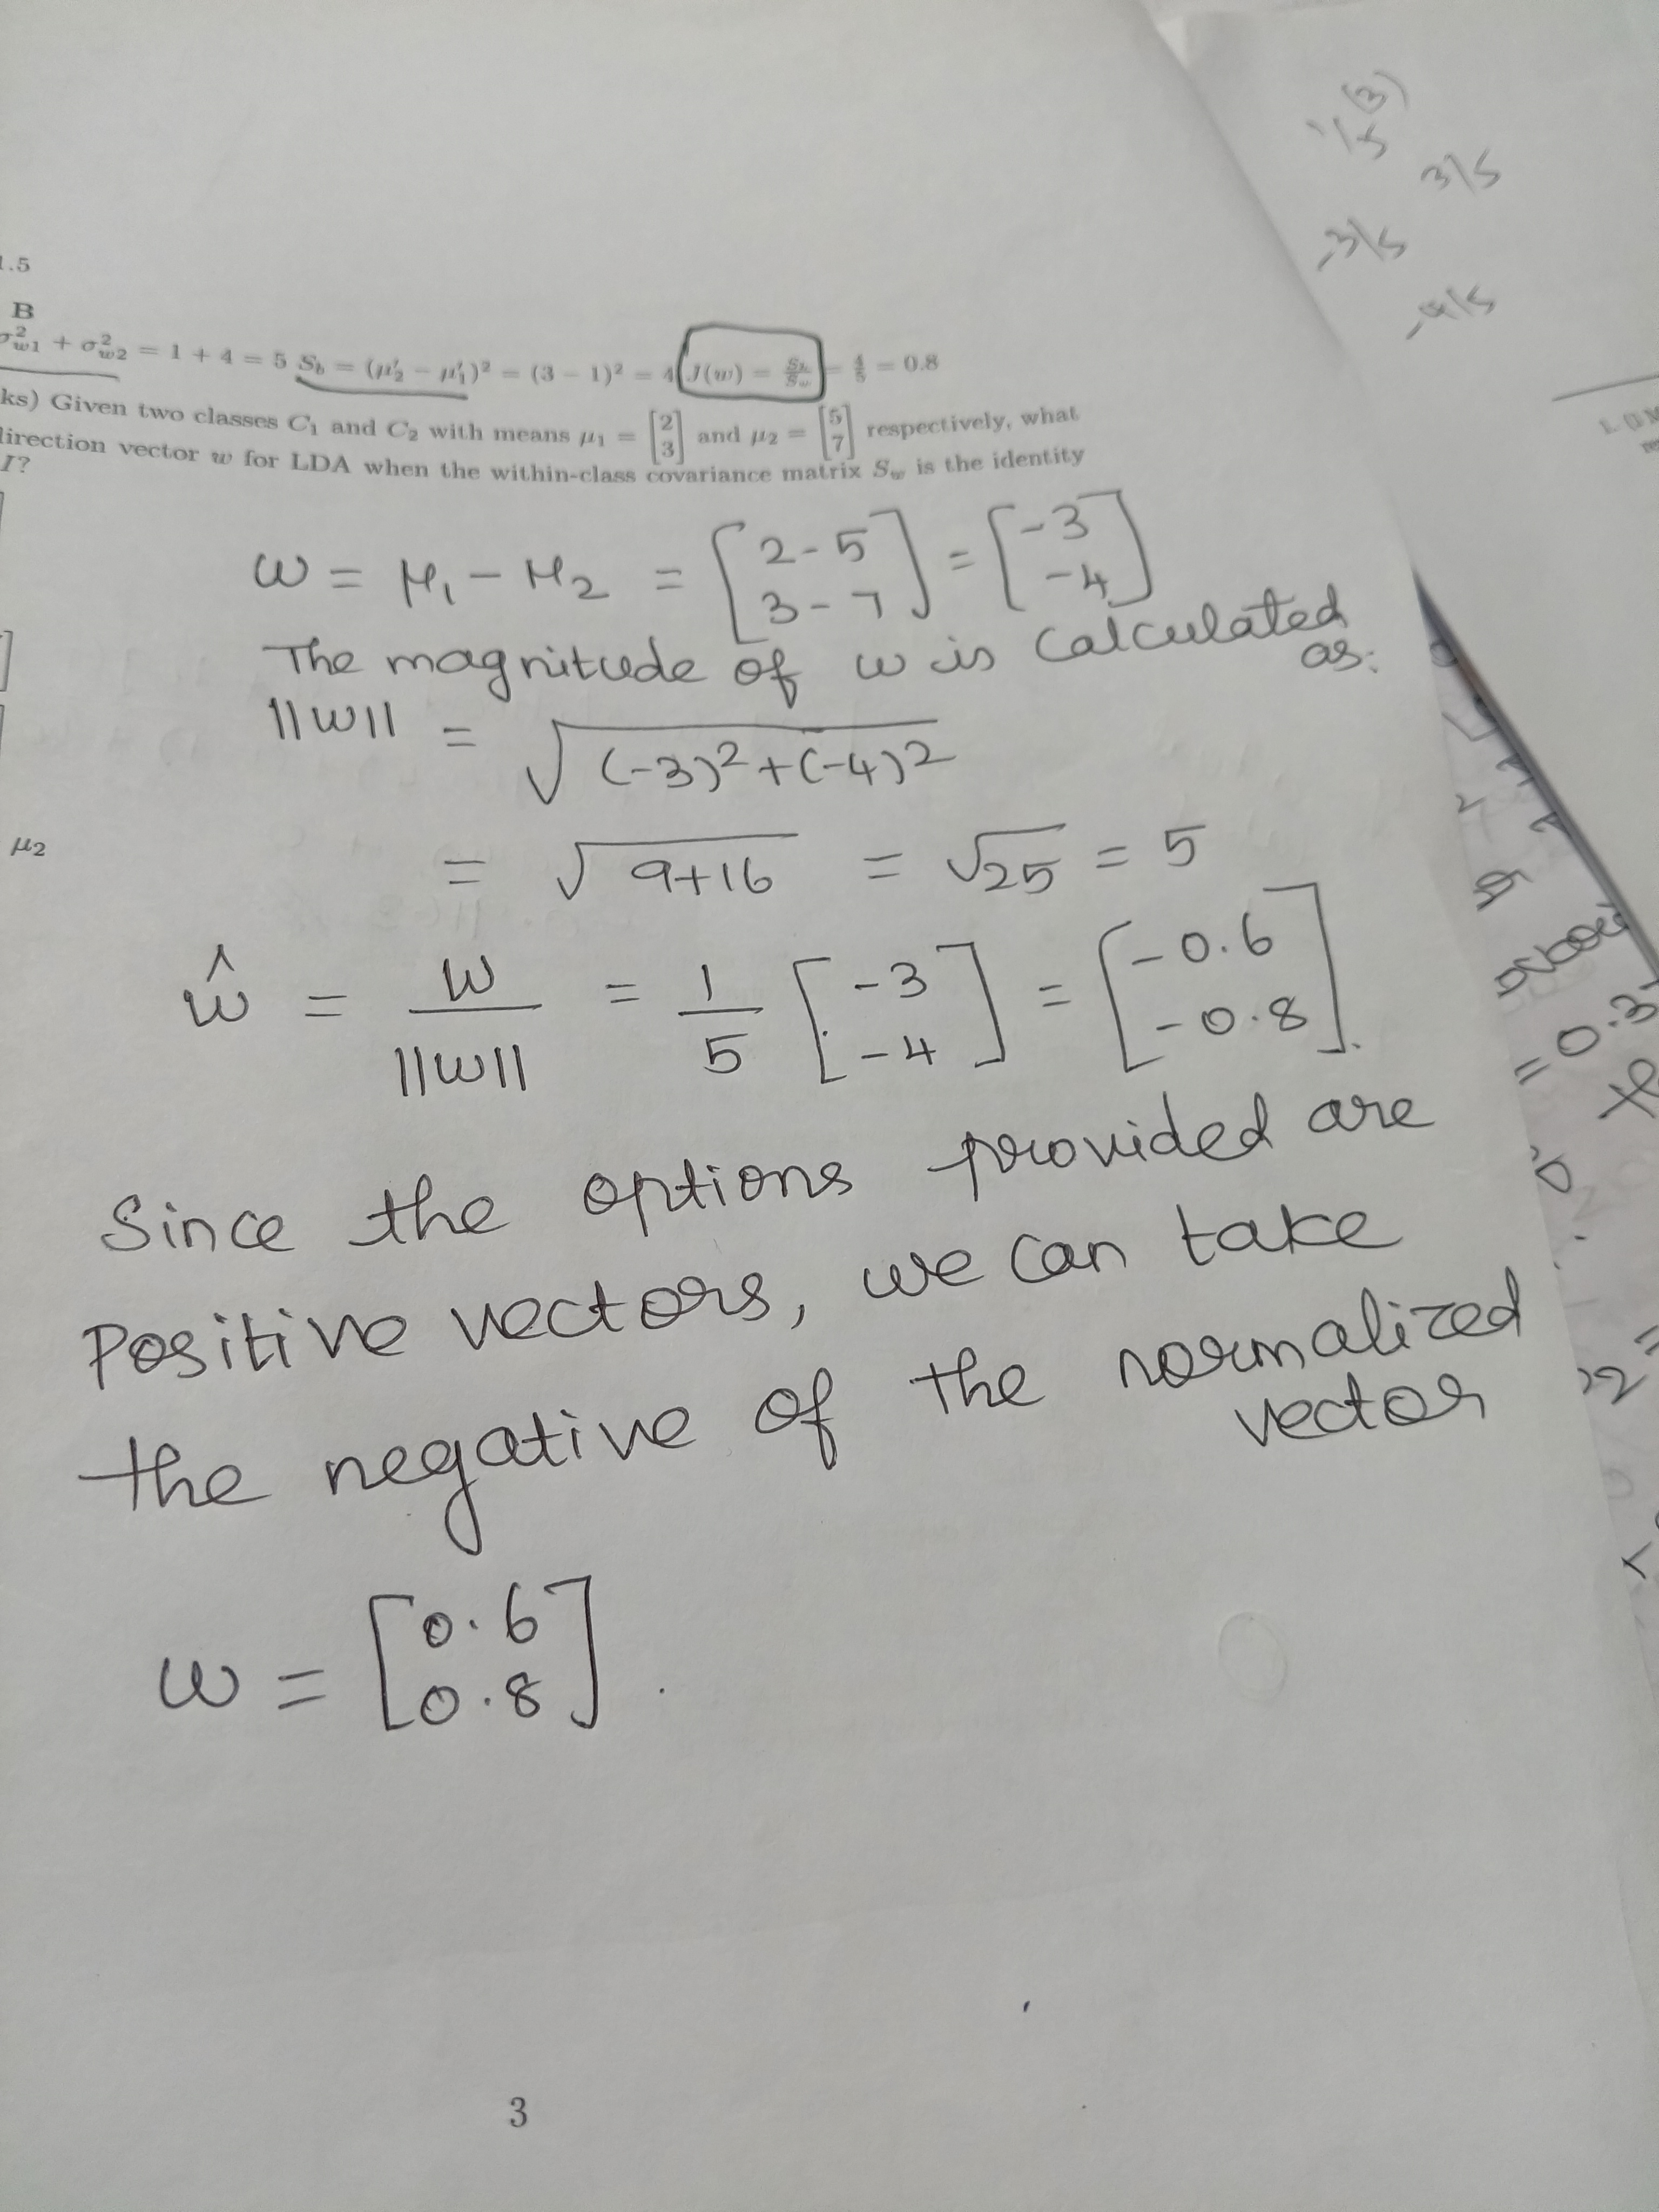 1.5
B
σ²w1 + σ²w2 = 1 + 4 = 5 Sb = (μ′2 − μ′1)² = (3 − 1)² = 4 J(w) = Sb/Sw = 4/5 = 0.8
ks) Given two classes C1 and C2 with means μ1 = [2 3] and μ2 = [5 7] respectively, what
direction vector w for LDA when the within-class covariance matrix Sw is the identity
I?
w = μ1 − μ2 = [2-5 3-7] = [-3 -4]
The magnitude of w is calculated as:
||w|| = √(-3)²+(-4)²
μ2
= √9+16 = √25 = 5
ŵ = w/||w|| = 1/5 [-3 -4] = [-0.6 -0.8].
Since the options provided are
Positive vectors, we can take
the negative of the normalized
vector
w = [0.6 0.8].
3
1/5 (3)
3/5
-3/5
-4/5
= 0.3